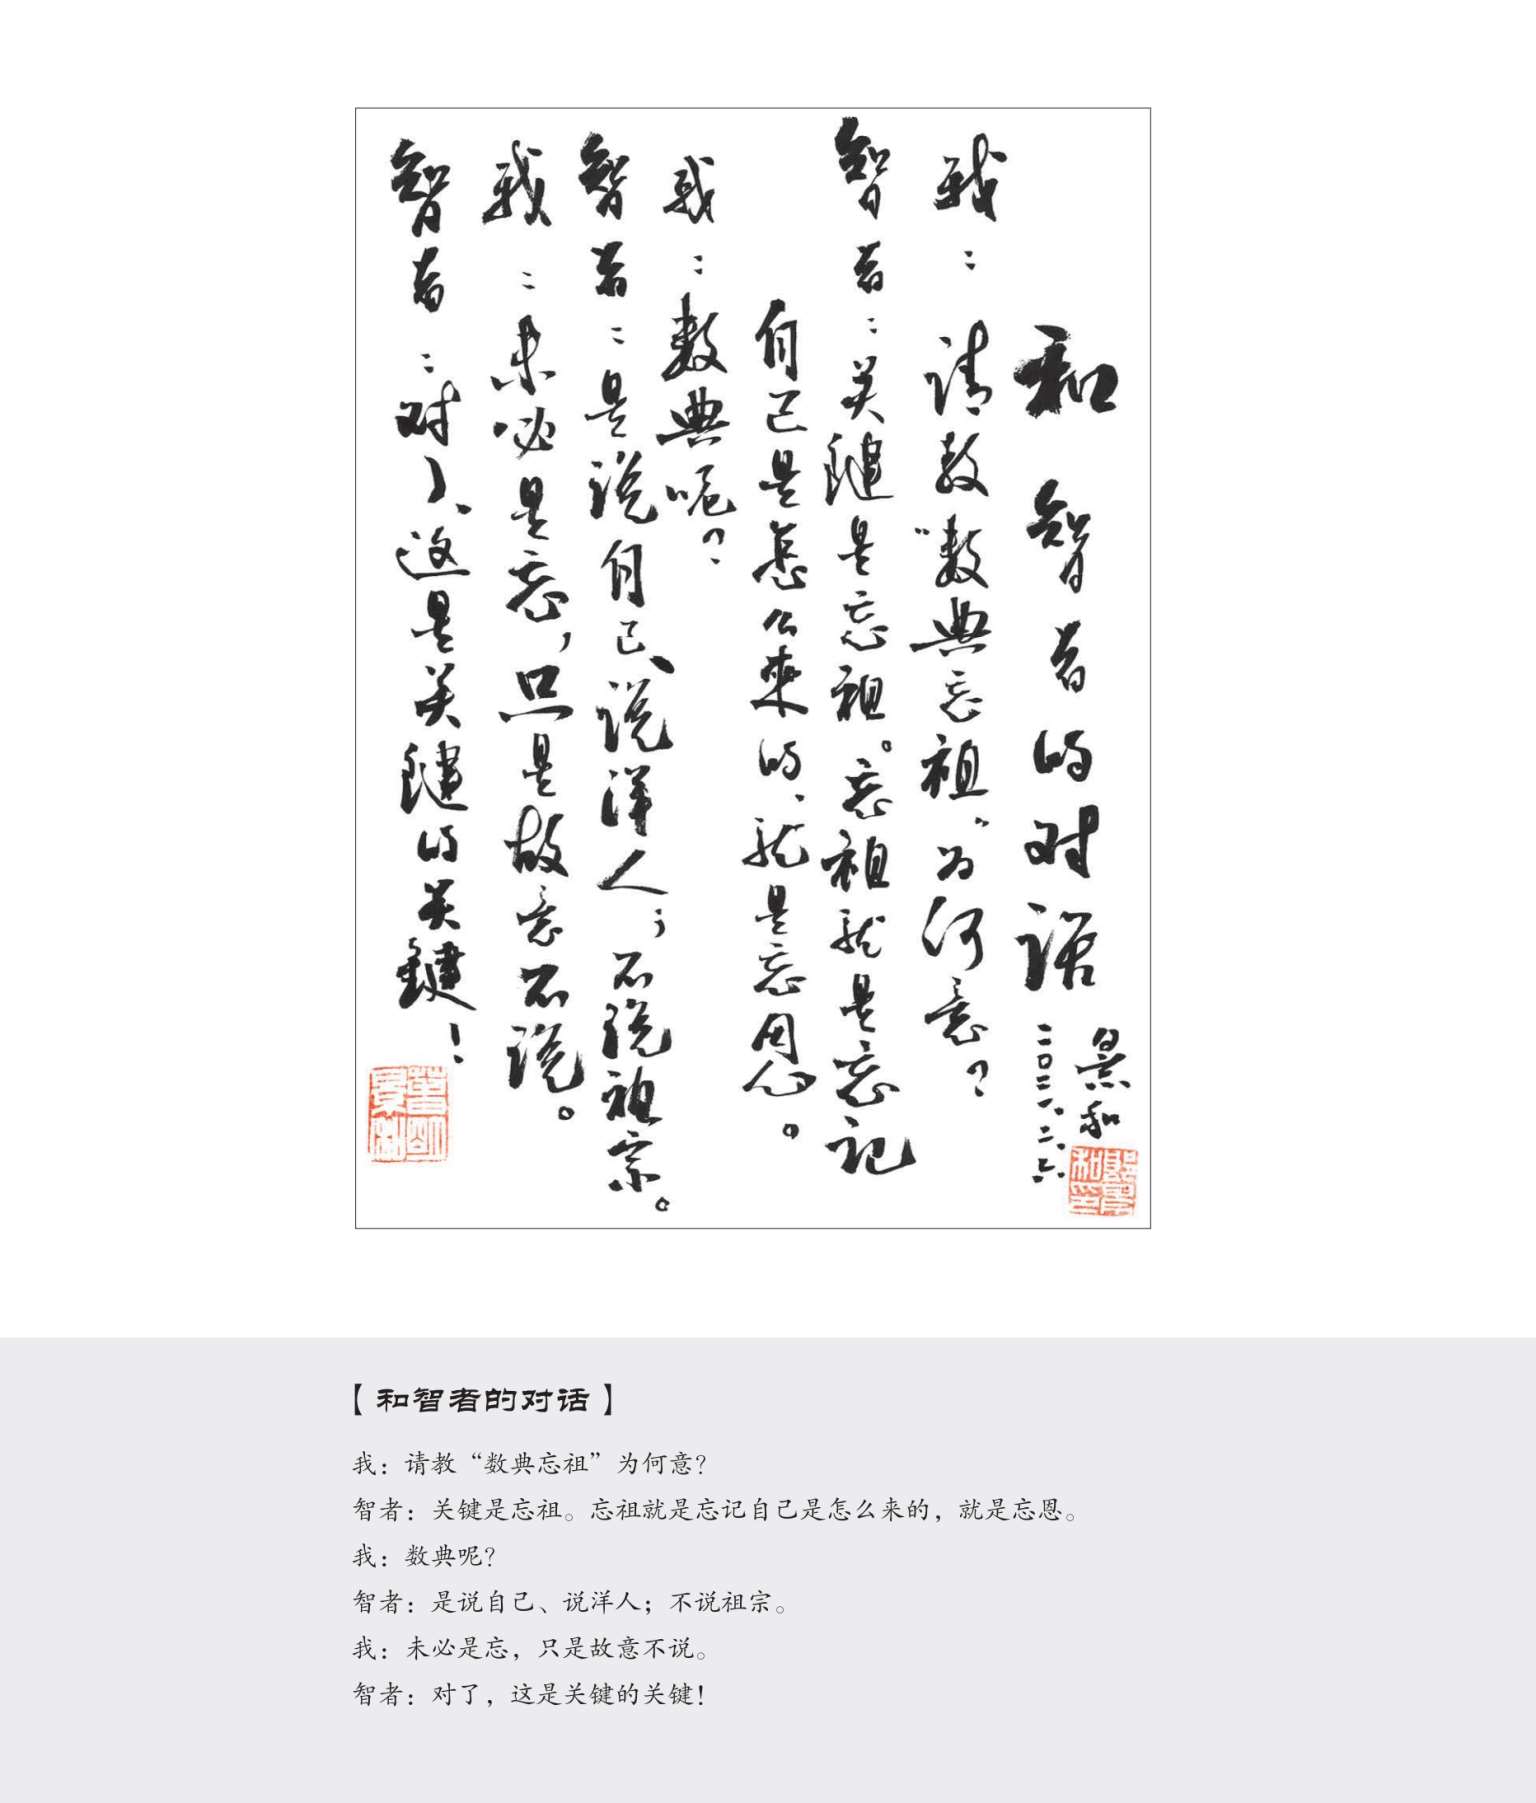 和智者的对话
景和
二〇二一、二、六
我：请教“数典忘祖”为何意？
智者：关键是忘祖。忘祖就是忘记
自己是怎么来的、就是忘恩。
我：数典呢？
智者：是说自己、说洋人；不说祖宗。
我：未必是忘，只是故意不说。
智者：对了、这是关键的关键！
【和智者的对话】
我：请教“数典忘祖”为何意？
智者：关键是忘祖。忘祖就是忘记自己是怎么来的，就是忘恩。
我：数典呢？
智者：是说自己、说洋人；不说祖宗。
我：未必是忘，只是故意不说。
智者：对了，这是关键的关键！